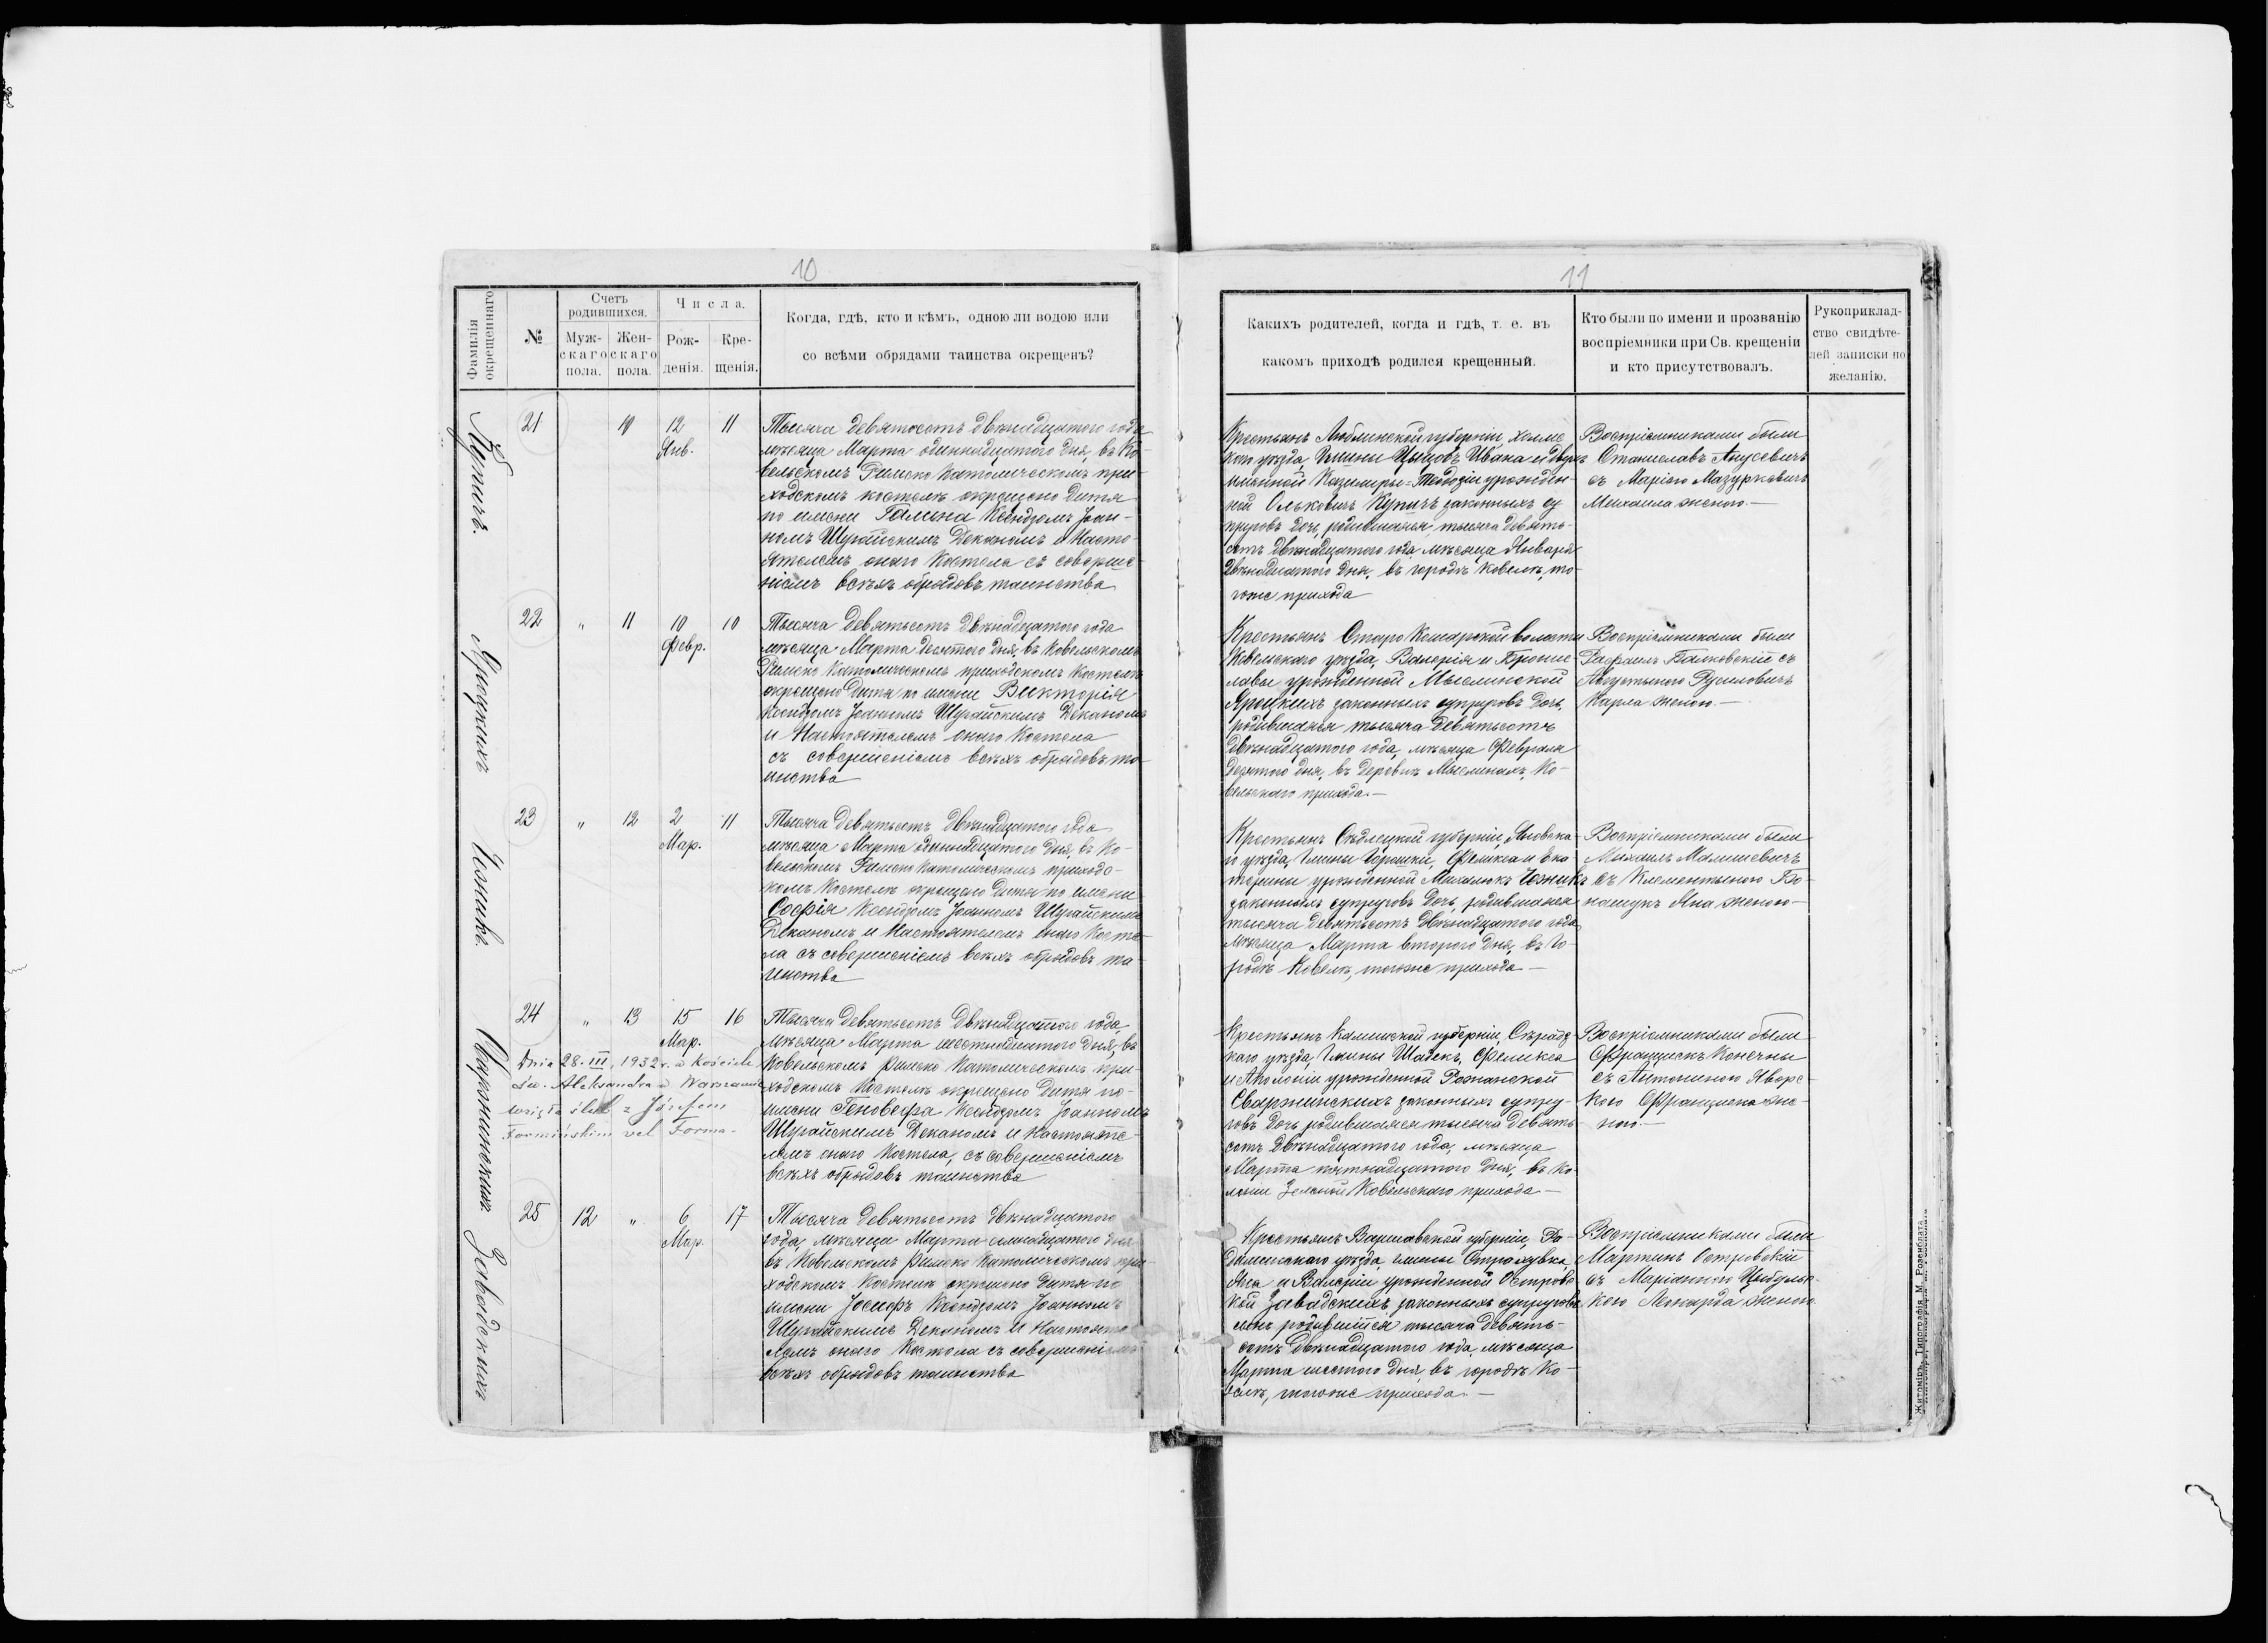 10
Фамилія окрещеннаго
№
Счетъ родившихся.
Муж-скаго пола.
Жен-скаго пола.
Числа.
Рож-денія.
Кре-щенія.
Когда, гдѣ, кто и кѣмъ, одною ли водою или
со всѣми обрядами таинства окрещенъ?
Купичъ.
21
10
12 Янв.
11
Тысяча девятьсотъ двѣнадцатого года
мѣсяца Марта одиннадцатого дня, въ Ко-
вельскомъ Римско Католическомъ при-
ходскомъ костелѣ окрещено дитя
по имени Галина Ксендзомъ Іоан-
номъ Шурайскимъ Деканомъ и Насто-
ятелемъ онаго Костела съ соверше-
ніемъ всѣхъ обрядовъ таинства
Яроцкихъ
22
"
11
10 Февр.
10
Тысяча девятьсотъ двѣнадцатого года
мѣсяца Марта десятого дня, въ Ковельскомъ
Римско Католическомъ приходскомъ Костелѣ
окрещено дитя по имени Викторія
Ксендзомъ Іоанномъ Шурайскимъ Деканомъ
и Настоятелемъ онаго Костела
съ совершеніемъ всѣхъ обрядовъ та-
инства
23
"
12
2 Мар.
11
Тысяча девятьсотъ двѣнадцатого года
мѣсяца Марта одиннадцатого дня, въ Ко-
вельскомъ Римско Католическомъ приходс-
комъ Костелѣ окрещено дитя по имени
Софія Ксендзомъ Іоанномъ Шурайскимъ
Деканомъ и Настоятелемъ онаго Косте-
ла съ совершеніемъ всѣхъ обрядовъ та-
инства
Сваржинскихъ
24
"
13
15 Мар.
16
Dnia 28.III.1932 r. w Kościele
św. Aleksandra w Warszawie
wzięła ślub z Józefem
Formińskim vel Forma-
Тысяча девятьсотъ двѣнадцатого года,
мѣсяца Марта шестнадцатого дня, въ
Ковельскомъ Римско Католическомъ при-
ходскомъ Костелѣ окрещено дитя по-
имени Геновефа Ксендзомъ Іоанномъ
Шурайскимъ Деканомъ и Настояте-
лемъ онаго Костела, съ совершеніемъ
всѣхъ обрядовъ таинства
Завадскихъ
25
12
"
6 Мар.
17
Тысяча девятьсотъ двѣнадцатого
года, мѣсяца Марта семнадцатого дня
въ Ковельскомъ Римско Католическомъ при-
ходскомъ Костелѣ окрещено дитя по
имени Іосифъ Ксендзомъ Іоанномъ
Шурайскимъ Деканомъ и Настояте-
лемъ онаго Костела съ совершеніемъ
всѣхъ обрядовъ таинства
11
Какихъ родителей, когда и гдѣ, т. е. въ
какомъ приходѣ родился крещенный.
Кто были по имени и прозванію
воспріемники при Св. крещеніи
и кто присутствовалъ.
Рукоприклад-
ство свидѣте-
лей записки по
желанію.
Крестьянъ Люблинской губерніи, Холмс-
кого уѣзда, Гмины Цыцовъ Ивана и двух-
именной Казимиры-Теодозіи урожден-
ной Олькович Купичъ законныхъ су-
пруговъ дочь, родившаяся тысяча девять-
сотъ двѣнадцатого года мѣсяца Января
двѣнадцатого дня, въ городѣ Ковелѣ, то-
гоже прихода
Воспріемниками были
Станиславъ Янусевичъ
съ Маріею Мазуркевичъ
Михаила женою.—
Крестьянъ Старо Кошарской волости
Ковельского уѣзда, Валерія и Брони-
славы урожденной Мыслинской
Яроцкихъ законныхъ супруговъ дочь,
родившаяся тысяча девятьсотъ
двѣнадцатого года, мѣсяца Февраля
десятого дня, въ деревнѣ Мыслинахъ, Ко-
вельскаго прихода.—
Воспріемниками были
Рафаилъ Балковскій съ
Августыною Русиловичъ
Карла женою.—
Крестьянъ Сѣдлецкой губерніи,
уѣзда, Гмины Горошки, Феликса и Ека-
терины урожденной Михалюкъ
законныхъ супруговъ дочь, родившаяся
тысяча девятьсотъ двѣнадцатого года
мѣсяца Марта второго дня, въ го-
родѣ Ковелѣ, тогоже прихода—
Воспріемниками были
Михаилъ Малишевичъ
съ Клементыною Бо-
нащукъ Яна женою—
Крестьянъ Калишской губерніи, Сѣрадз-
каго уѣзда, Гмины Шадекъ, Феликса
и Аполоніи урожденной Рожанской
Сваржинскихъ законныхъ супру-
говъ дочь родившаяся тысяча девять-
сотъ двѣнадцатого года, мѣсяца
Марта пятнадцатого дня, въ ко-
лоніи Зеленой Ковельскаго прихода—
Воспріемниками были
Францискъ Конечны
съ Антониною Яворс-
кою Францишка же-
ною.—
Крестьянъ Варшавской губерніи, Ра-
диминскаго уѣзда, гмины Страхувка,
Яна и Валеріи урожденной Островс-
кой Завадскихъ законныхъ супруговъ
сынъ родившійся тысяча девять-
сотъ двѣнадцатого года, мѣсяца
Марта шестого дня, въ городѣ Ко-
велѣ, тогоже прихода.—
Воспріемниками были
Мартинъ Островскій
съ Маріанною Цыбульс-
кою Леонарда женою.
Житоміръ, Типографія М. Розенблата